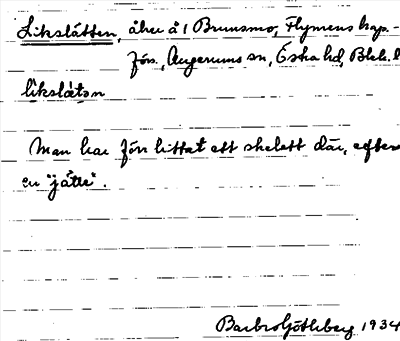 Likslätten, åker å 1 Brunsmo, Flymens kap.-
förs., Augerums sn, Östra hd, Blek. l
likslætən
Man har förr hittat ett skelett där, efter
en "jätte".
Barbro Götheberg 1934